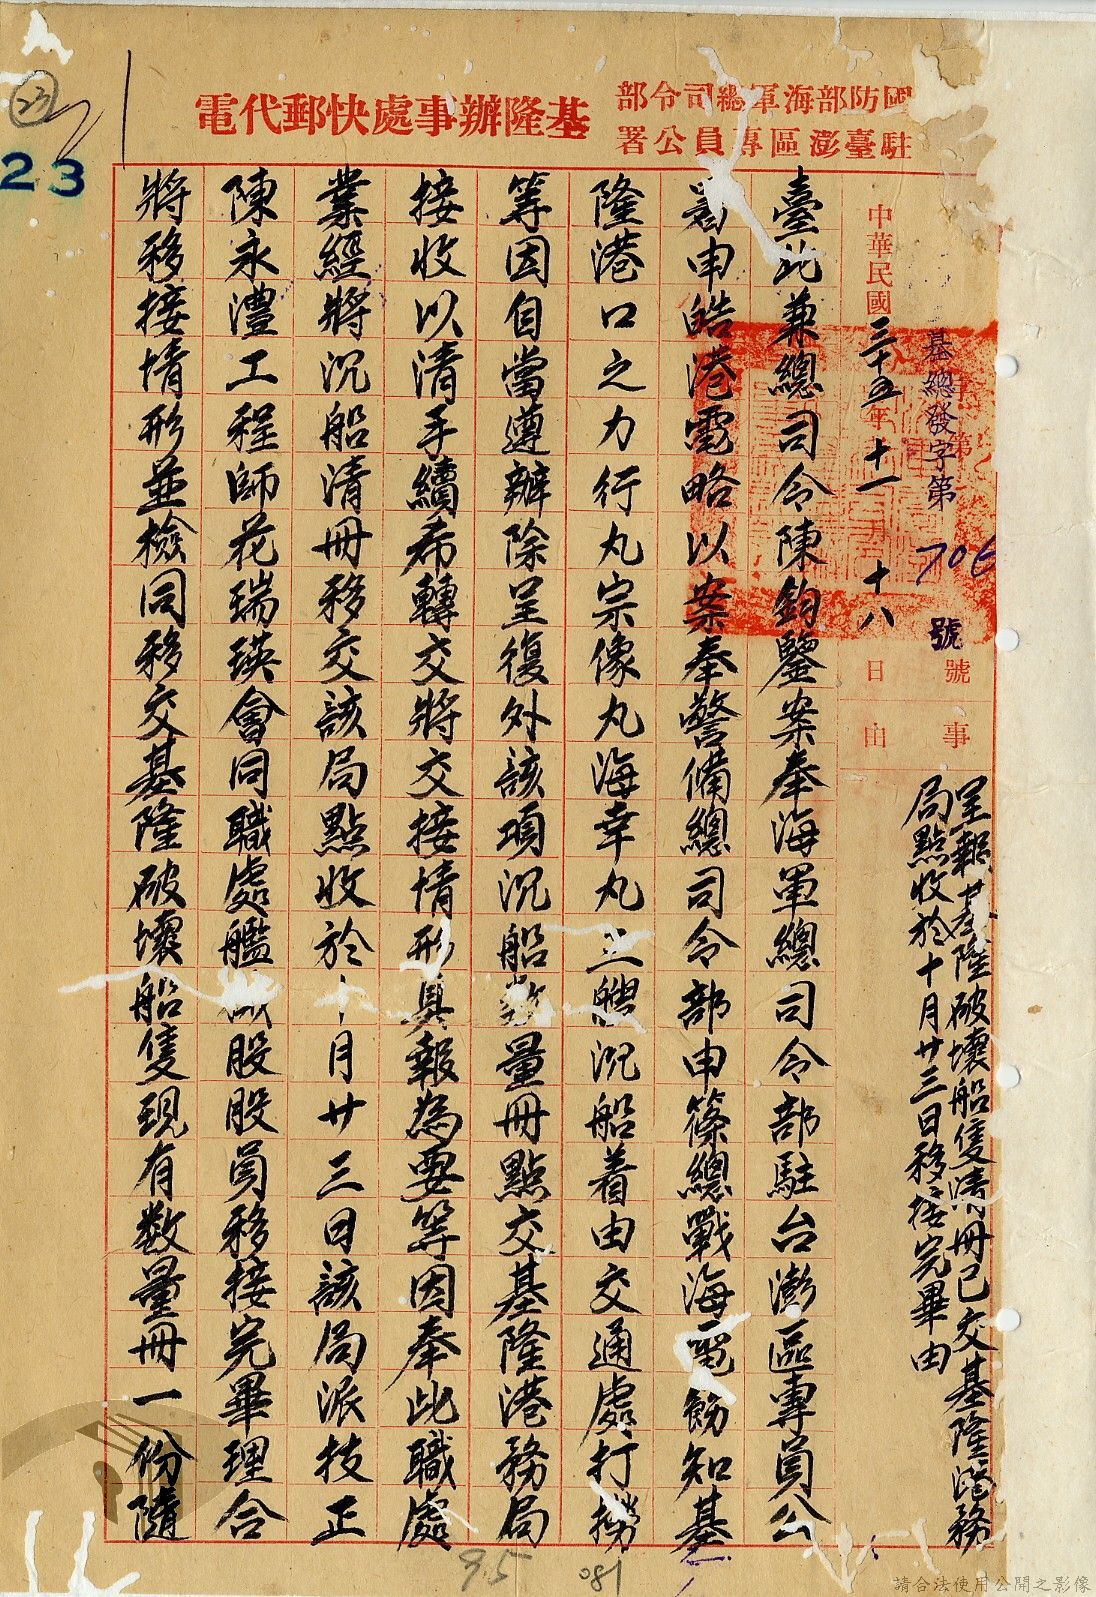 國防部海軍總司令部
駐臺澎區專員公署
基隆辦事處快郵代電
基總發字第706號
號
事
呈報基隆破壞船隻清冊已交基隆港務
局點收於十月廿三日移接完畢由
中華民國三十五年十一月十八日
由
臺北兼總司令陳鈞鑒案奉海軍總司令部駐台澎區專員公
署申皓港電略以案奉警備總司令部申篠總戰海電飭知基
隆港口之力行丸宗像丸海幸丸三艘沉船着由交通處打撈
等因自當遵辦除呈復外該項沉船数量冊點交基隆港務局
接收以清手續希轉交將交接情形具報為要等因奉此職處
業經將沉船清冊移交該局點收於十月廿三日該局派技正
陳永灃工程師花瑞瑛會同職處艦股股員移接完畢理合
將移接情形並檢同移交基隆破壞船隻現有数量冊一份隨
23
23
95
081
請合法使用公開之影像